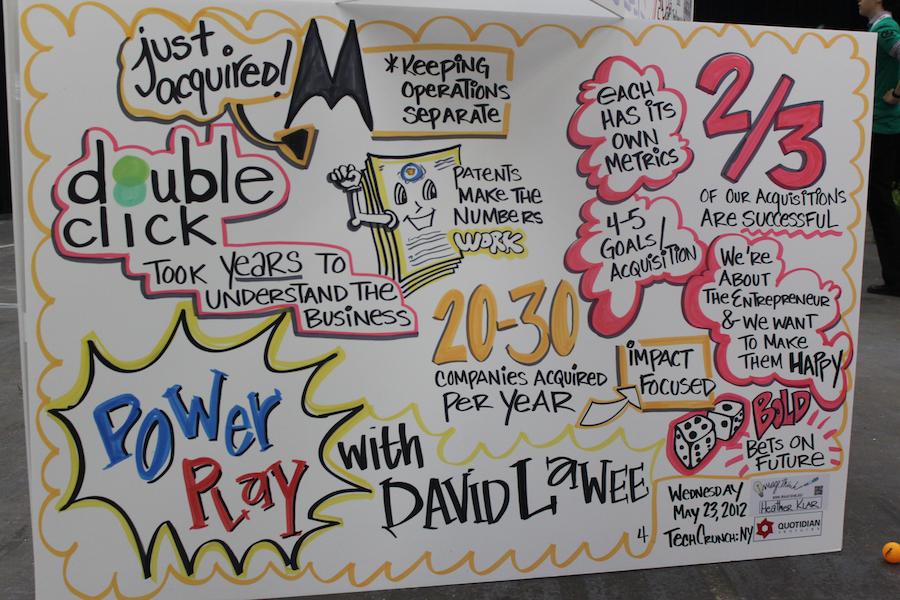 just
acquired!
*Keeping
operations
separate
double
click
Took years to
understand the
business
Patents
make the
numbers
work
each
has its
own
metrics
4-5
goals/
acquisition
2/3
of our acquisitions
are successful
We're
about
the entrepreneur
& we want
to make
them happy
20-30
companies acquired
per year
impact
focused
Bold
bets on
future
Power
Play
with
David Lawee
4
Wednesday
May 23, 2012
TechCrunch: NY
ImageThink
Heather Klar
QUOTIDIAN
VENTURES